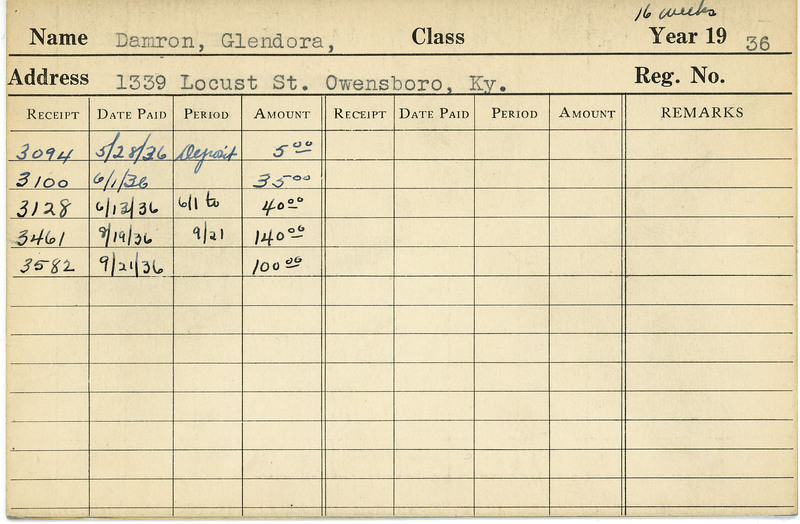 16 weeks
Name Damron, Glendora, Class Year 19 36
Address 1339 Locust St. Owensboro, Ky. Reg. No.
RECEIPT DATE PAID PERIOD AMOUNT RECEIPT DATE PAID PERIOD AMOUNT REMARKS
3094 5/28/36 Deposit 5.00
3100 6/1/36 35.00
3128 6/13/36 6/1 to 40.00
3461 8/19/36 9/21 140.00
3582 9/21/36 100.00